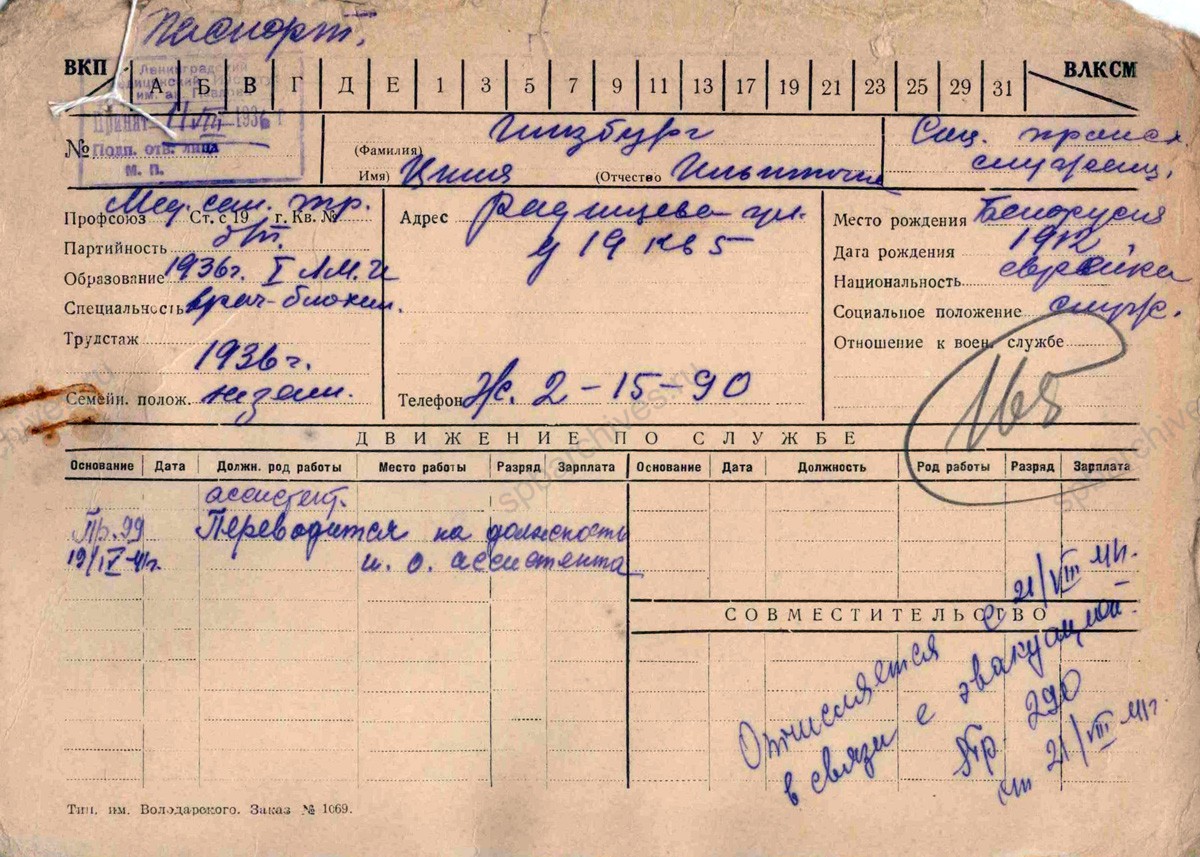 Паспорт.
ВКП А Б В Г Д Е 1 3 5 7 9 11 13 17 19 21 23 25 29 31 ВЛКСМ
Ленинградский
им. ак. Павлова
Принят 11/VIII 1936 г
Подп. отв. лица
М. П.
№
(Фамилия) Гинзбург
Имя) Циля (Отчество Ильинична
Соц. происх.
служащ.
Профсоюз Мед. сан. тр. Ст. с 19 г. Кв. №
Партийность б/п.
Образование 1936г. I ЛМИ
Специальность врач-биохим.
Трудстаж
1936 г.
Семейн. полож. незам.
Адрес Радищева ул.
д 19 кв 5
Телефон Ж. 2-15-90
Место рождения Белорусия
Дата рождения 1912
Национальность еврейка
Социальное положение служ.
Отношение к воен. службе
165
ДВИЖЕНИЕ ПО СЛУЖБЕ
Основание Дата Должн. род работы Место работы Разряд Зарплата Основание Дата Должность Род работы Разряд Зарплата
ассистент.
Пр. 99 Переводится на должность
19/IV-41г. и. о. ассистента
СОВМЕСТИТЕЛЬСТВО
Отчисляется с 21/VIII 41г.
в связи с эвакуацией.
Пр. 290
от 21/VIII 41г.
Тип. им. Володарского. Заказ № 1069.
spbarchives.ru
spbarchives.ru
spbarchives.ru